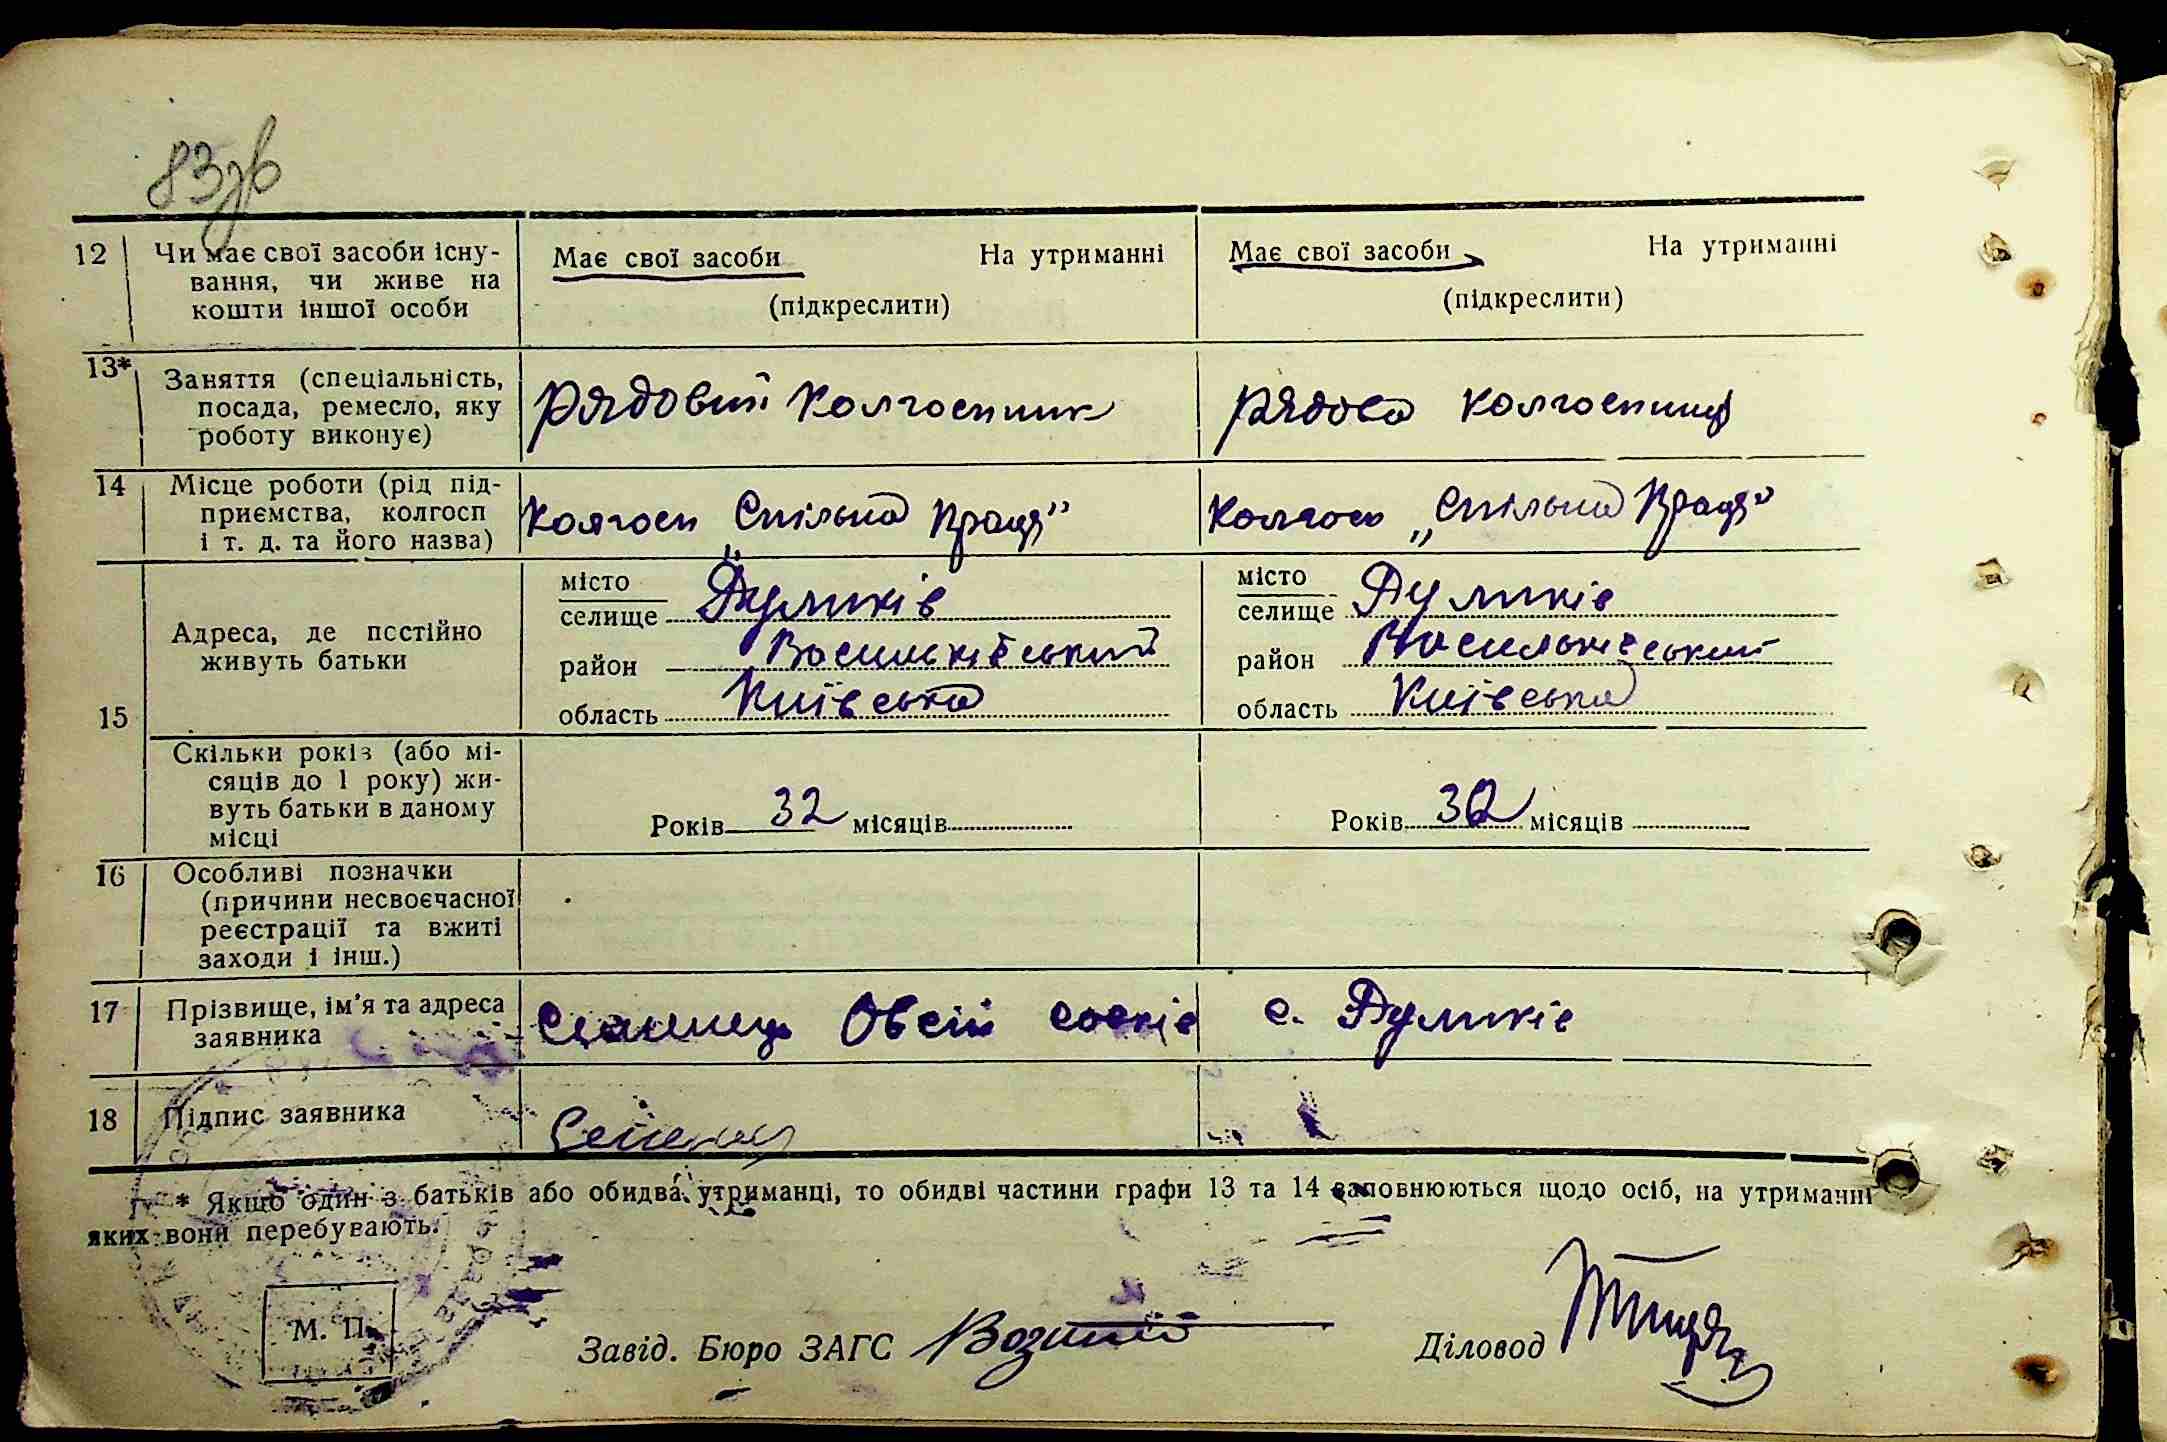 83зв
12 Чи має свої засоби існу- Має свої засоби На утриманні Має свої засоби На утриманні
вання, чи живе на
кошти іншої особи (підкреслити) (підкреслити)
13* Заняття (спеціальність,
посада, ремесло, яку Рядовий колгоспник рядова колгоспниця
роботу виконує)
14 Місце роботи (рід під-
приємства, колгосп колгосп „Спільна праця" колгосп „Спільна Праця"
і т. д. та його назва)
місто місто
селище Дуликів селище Дуликів
15 Адреса, де постійно
живуть батьки район Васильківський район Васильківський
область Київська область Київська
Скільки років (або мі-
сяців до 1 року) жи-
вуть батьки в даному Років 32 місяців Років 30 місяців
місці
16 Особливі позначки
(причини несвоєчасної
реєстрації та вжиті
заходи і інш.)
17 Прізвище, ім'я та адреса Овсій с. Дуликів
заявника
18 Підпис заявника
* Якщо один з батьків або обидва утриманці, то обидві частини графи 13 та 14 заповнюються щодо осіб, на утриманні
яких вони перебувають.
М. П.
Завід. Бюро ЗАГС Діловод